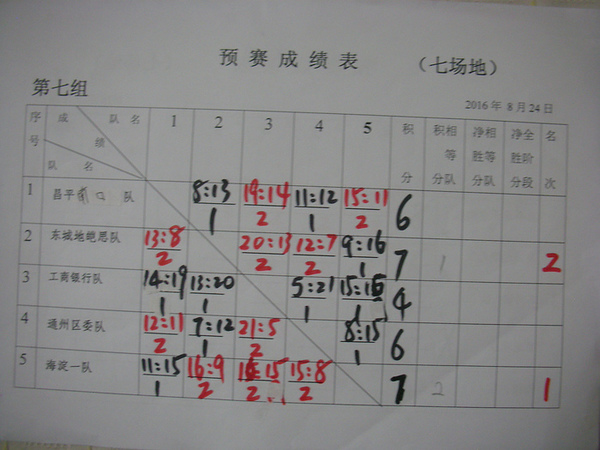 预赛成绩表 （七场地）
第七组
2016年 8月24日
序号 成绩 队名 队名 1 2 3 4 5 积分 积相等分队 净相胜等分队 净全胜阶分段 名次
1 昌平 口 队 8:13 19:14 11:12 15:11 6
1 2 1 2
2 东城地皑思队 13:8 20:13 12:7 9:16 7 1 2
2 2 2 1
3 工商银行队 14:19 13:20 5:21 15:16 4
1 1 1 1
4 通州区委队 12:11 7:12 21:5 8:15 6
2 1 2 1
5 海淀一队 11:15 16:9 16:15 15:8 7 2 1
1 2 2 2